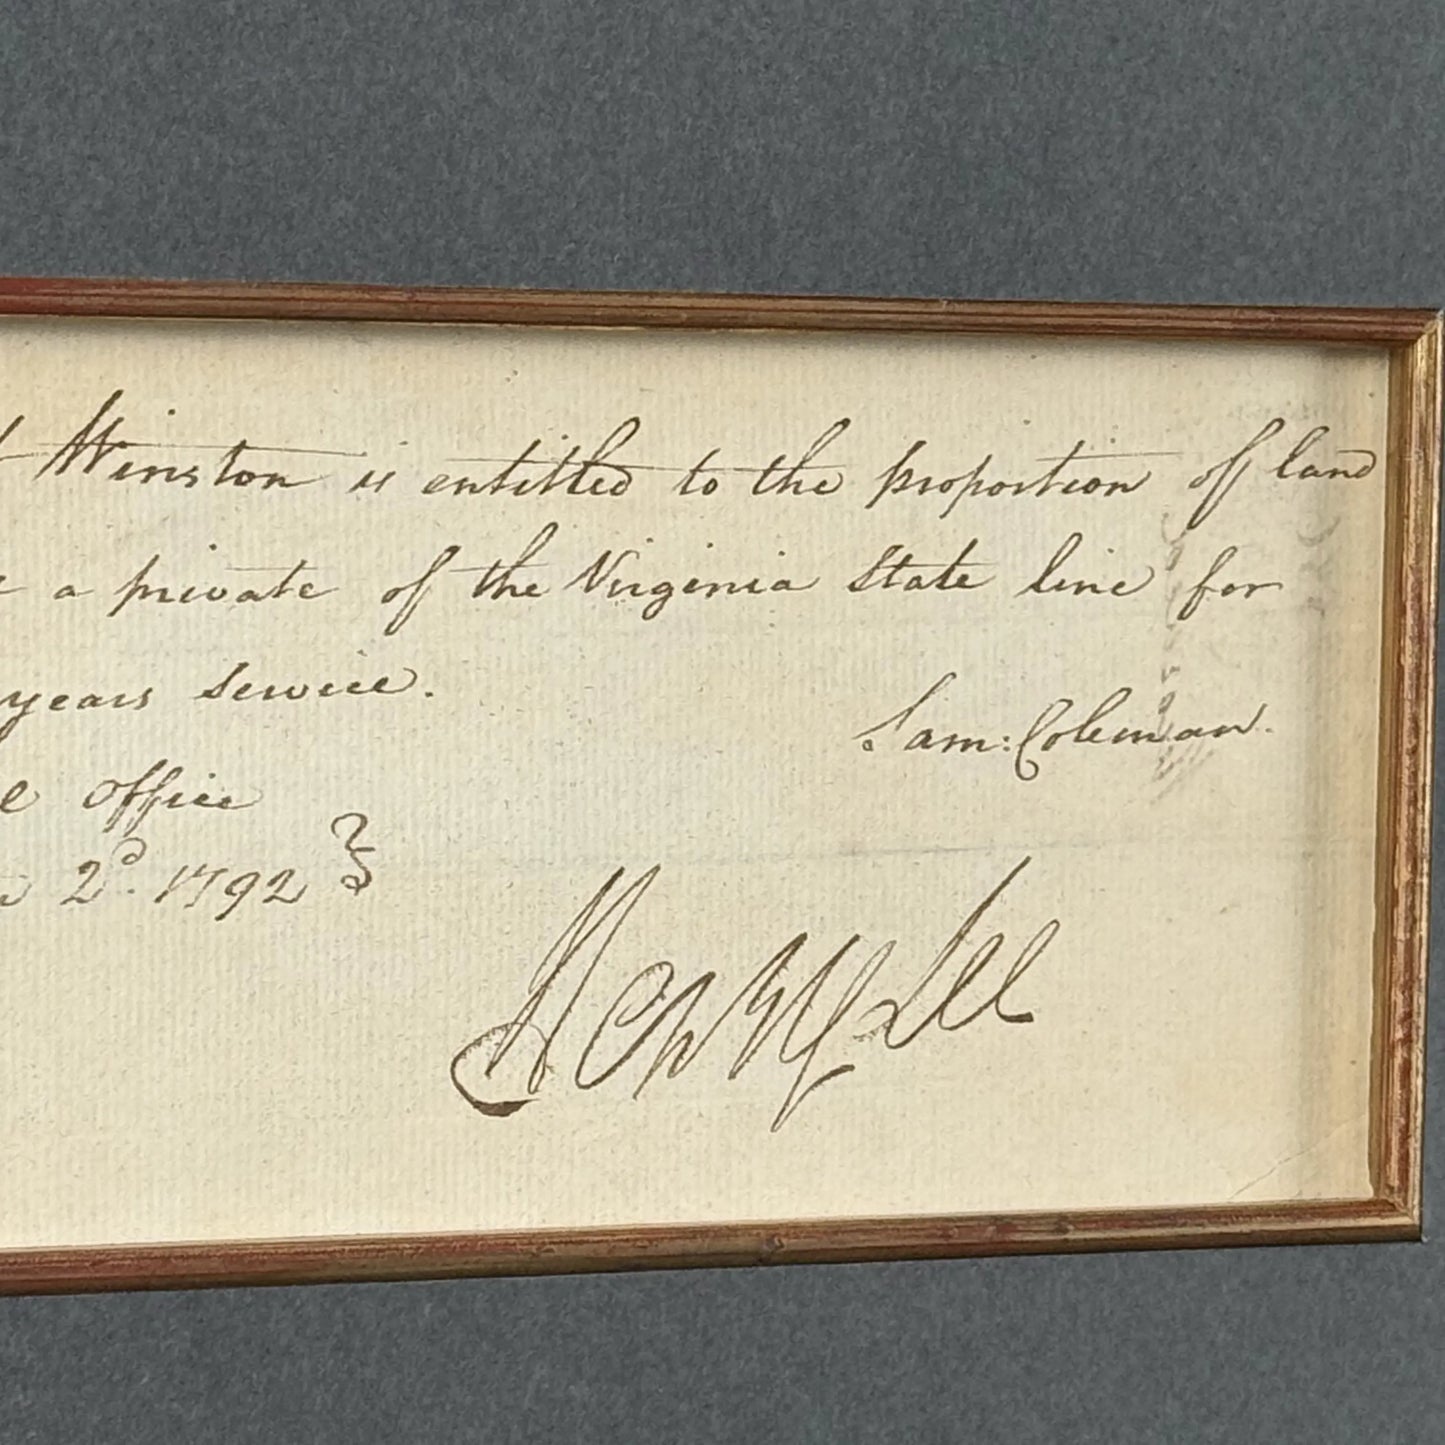 Winston is entitled to the proportion of land
a private of the Virginia State line for
years service.
Sam: Coleman.
Office
2d. 1792
Henry Lee